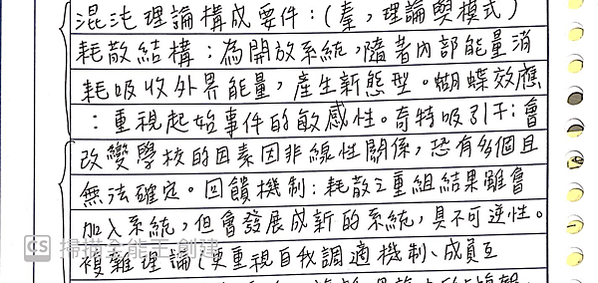 混沌理論構成要件:(秦,理論與模式)
耗散結構:為開放系統,隨著內部能量消
耗吸收外界能量,產生新態型。蝴蝶效應
:重視起始事件的敏感性。奇特吸引子:會
改變學校的因素因非線性關係,恐有多個且
無法確定。回饋機制:耗散之重組結果雖會
加入系統,但會發展成新的系統,具不可逆性。
複雜理論(更重視自我調適機制、成員互
CS 掃描全能王 創建